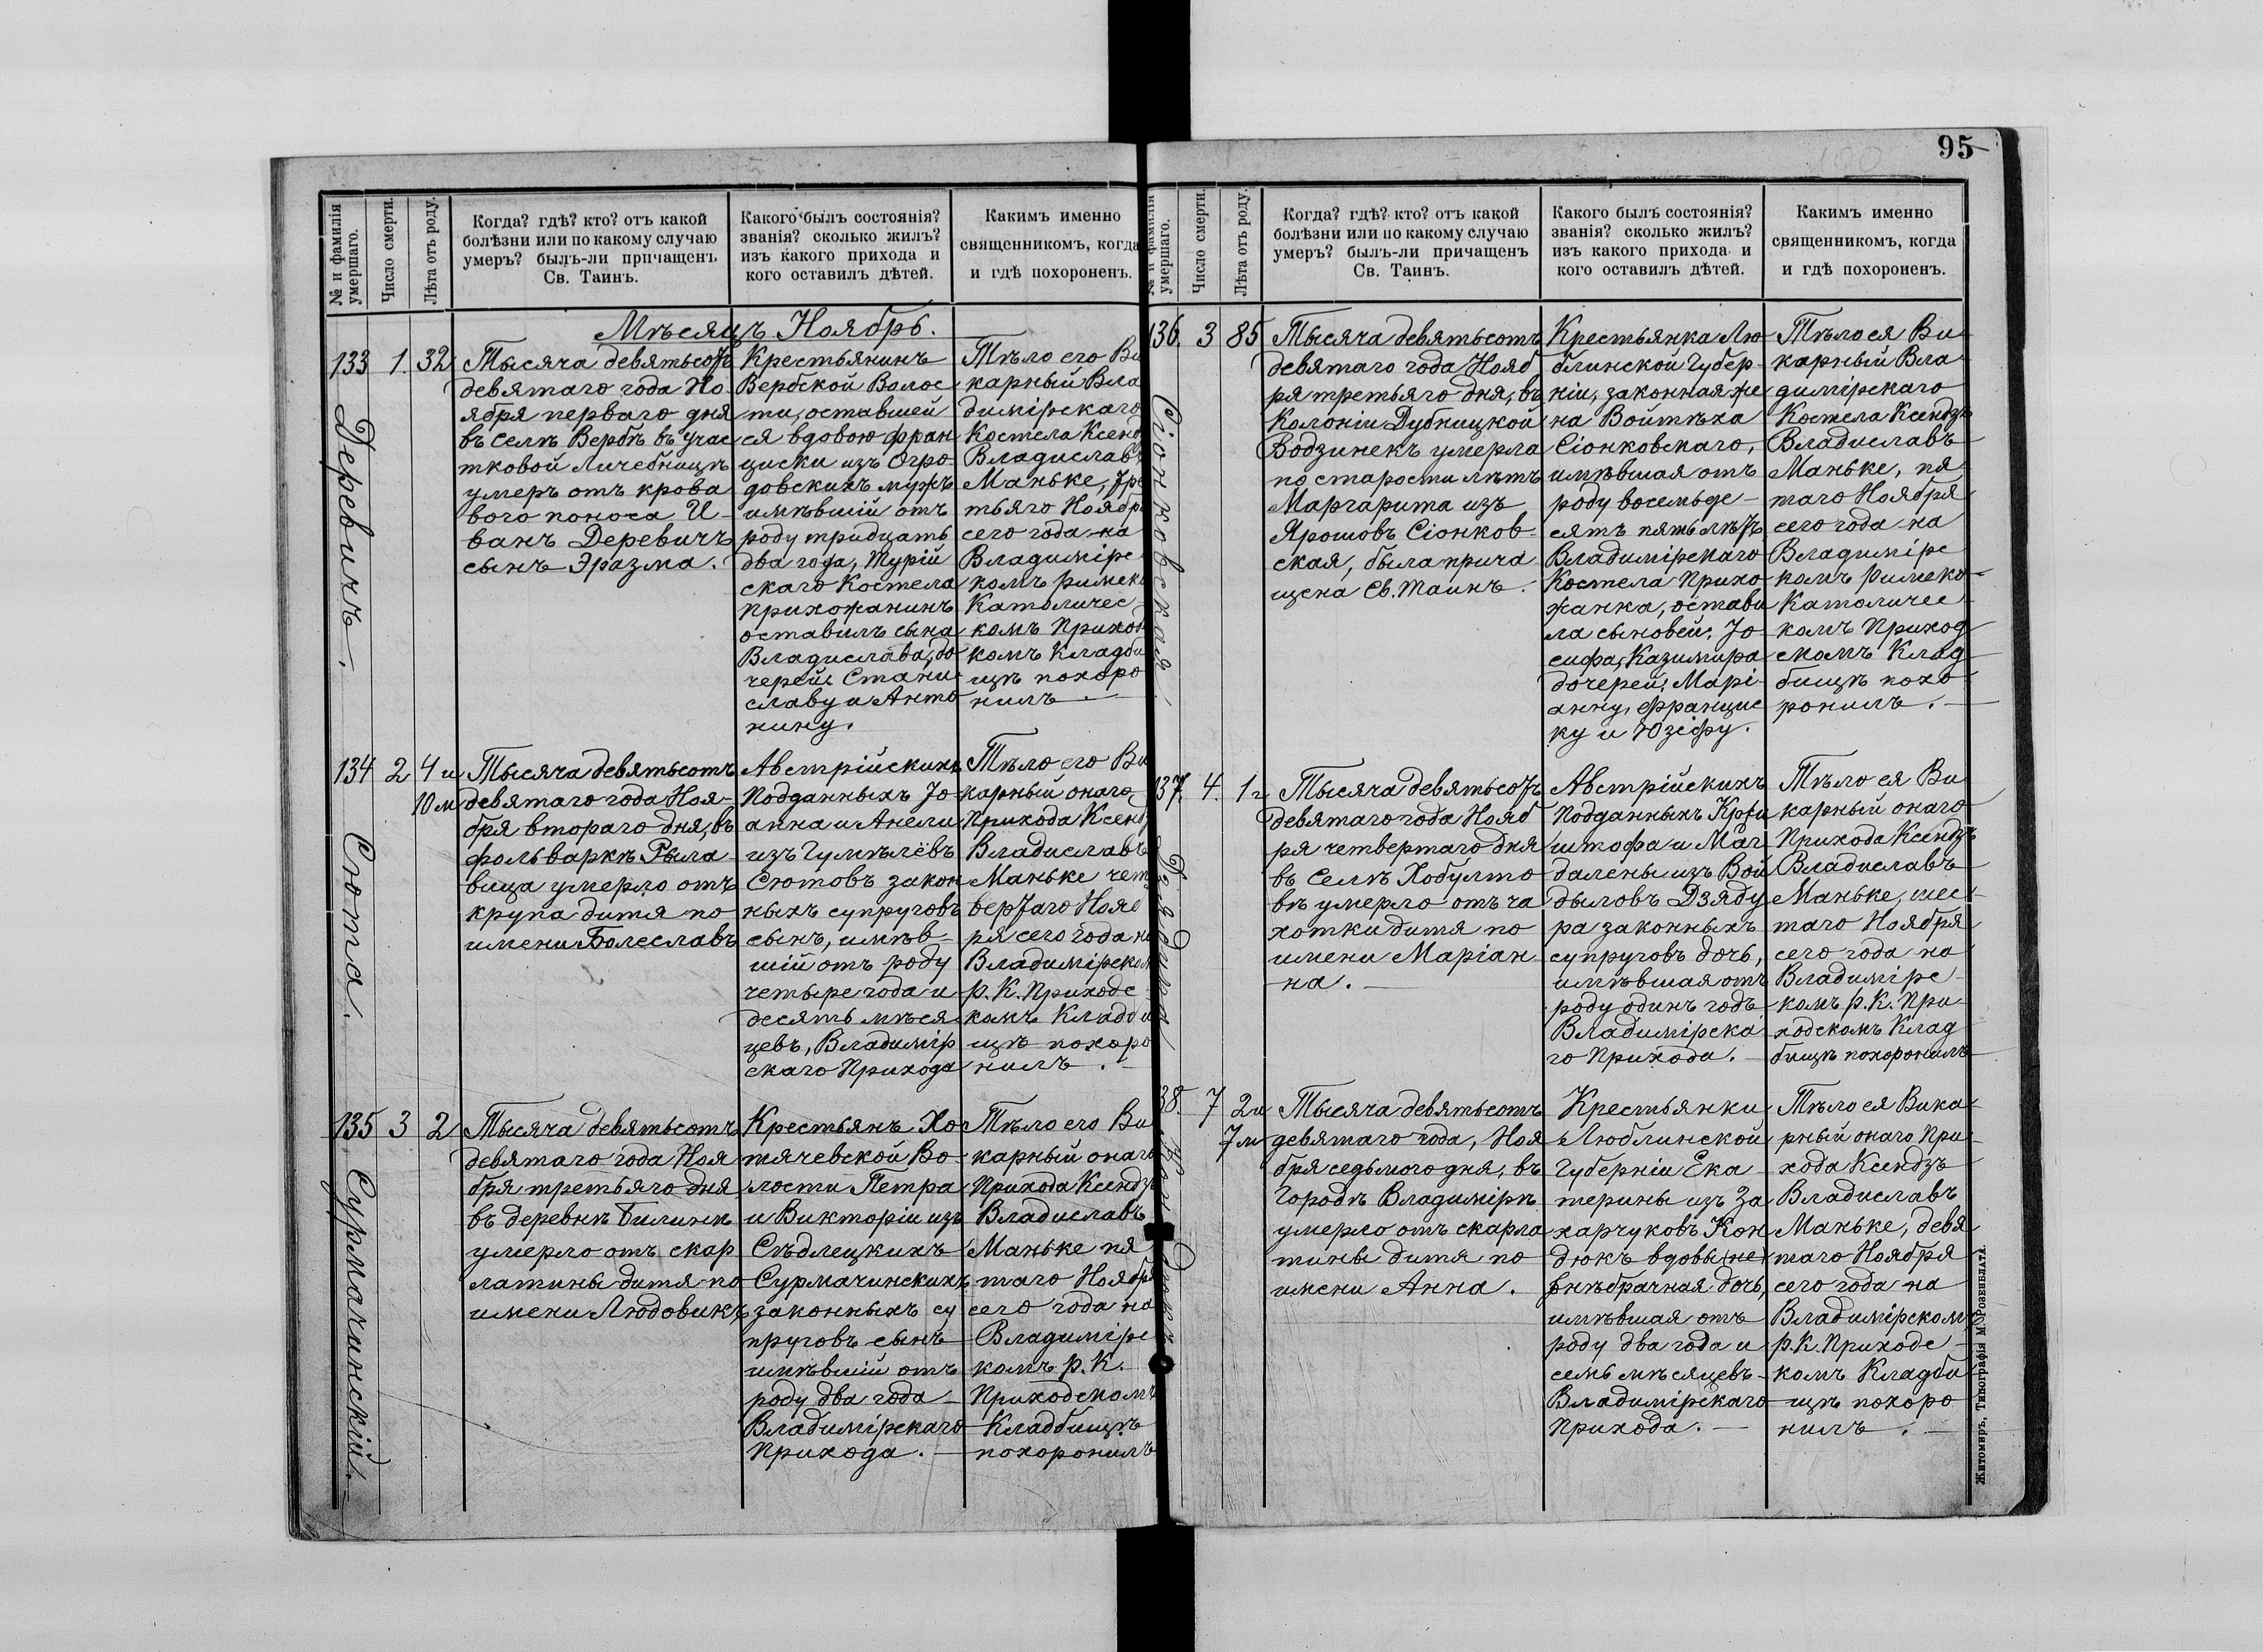 95
№ и фамилія умершаго.
Число смерти.
Лѣта отъ роду.
Когда? гдѣ? кто? отъ какой
болѣзни или по какому случаю
умеръ? былъ-ли причащенъ
Св. Таинъ.
Какого былъ состоянія?
званія? сколько жилъ?
изъ какого прихода и
кого оставилъ дѣтей.
Какимъ именно
священникомъ, когда
и гдѣ похороненъ.
Мѣсяцъ Ноябрь.
133
Деревичъ.
1
32
Тысяча девятьсотъ
девятаго года Но
ября перваго дня
въ селѣ Вербѣ въ учас
тковой личебницѣ
умеръ отъ крова
вого поноса И-
ванъ Деревичъ
сынъ Эразма.
Крестьянинъ
Вербской Волос
ти, оставшей
ся вдовою Фран
циски изъ Огро-
довскихъ мужъ
имѣвшій отъ
роду тридцать
два года, Турій
скаго Костела
прихожанинъ
оставилъ сына
Владислава, до
черей: Стани
славу и Анто
нину.
Тѣло его Ви
карный Вла
димірскаго
Костела Ксендз
Владиславъ
Маньке, тре
тьяго Ноябр
сего года на
Владимірс
комъ римско
Католичес
комъ Приход
комъ Кладби
щѣ похоро
нилъ
134
Сюта.
2
4 и
10 м
Тысяча девятьсотъ
девятаго года Ноя-
бря втораго дня, въ
фольваркѣ Рыла-
вица умерло отъ
крупа дитя по
имени Болеславъ
Австрійскихъ
Подданныхъ Іо-
анна и Анели
изъ Гумѣлёвъ
Сютовъ закон
ныхъ супруговъ
сынъ, имѣв-
шій отъ роду
четыре года и
десять мѣся
цевъ, Владимір
скаго Прихода
Тѣло его Ви
карный онаго
Прихода Ксендз
Владиславъ
Маньке чет
вертаго Нояб
ря сего года на
Владимірском
р. К. Приходс
комъ Кладби
щѣ похоро
нилъ.
135
Сурмачинскій.
3
2
Тысяча девятьсотъ
девятаго года Ноя
бря третьяго дня
въ деревнѣ Билинѣ
умерло отъ скар
латины дитя по
имени Людовикъ
Крестьянъ Хо
тячевской Во-
лости Петра
и Викторіи изъ
Сѣдлецкихъ
Сурмачинскихъ
законныхъ су
пруговъ сынъ
имѣвшій отъ
роду два года
Владимірскаго
Прихода.
Тѣло его Ви
карный онаго
Прихода Ксендзъ
Владиславъ
Маньке пя
таго Ноября
сего года на
Владимірс
комъ р. К.
Приходскомъ
Кладбищѣ
похоронилъ
№ и фамилія умершаго.
Число смерти.
Лѣта отъ роду.
Когда? гдѣ? кто? отъ какой
болѣзни или по какому случаю
умеръ? былъ-ли причащенъ
Св. Таинъ.
Какого былъ состоянія?
званія? сколько жилъ?
изъ какого прихода и
кого оставилъ дѣтей.
Какимъ именно
священникомъ, когда
и гдѣ похороненъ.
136.
Сіонковская.
3
85
Тысяча девятьсотъ
девятаго года Нояб
ря третьяго дня, въ
Колоніи Дубницкой
Водзинекъ умерла
по старости лѣтъ
Маргарита изъ
Ярошовъ Сіонков-
ская, была прича
щена Св. Таинъ.
Крестьянка Лю
блинской Губер-
ніи, законная же
на Войтѣха
Сіонковскаго,
имѣвшая отъ
роду восемьде-
сятъ пять лѣтъ
Владимірскаго
Костела Прихо
жанка, остави
ла сыновей: Іо
сифа, Казимира
дочерей: Марі-
анну, Францис
ку и Юзефу.
Тѣло ея Ви
карный Вла
димірскаго
Костела Ксендзъ
Владиславъ
Маньке, пя
таго Ноября
сего года на
Владимірс
комъ римско
Католичес
комъ Приход
скомъ Клад
бищѣ похо
ронилъ.
137.
4.
1 г
Тысяча девятьсотъ
девятаго года Нояб
ря четвертаго дня
въ селѣ Хобулто
вѣ умерло отъ ча
хотки дитя по
имени Маріан-
на.
Австрійскихъ
Подданныхъ Кри
штофа и Маг
далены изъ Вой
дыловъ Дзяду
ра законныхъ
супруговъ дочь,
имѣвшая отъ
роду одинъ годъ
Владимірска
го Прихода.
Тѣло ея Ви
карный онаго
Прихода Ксендзъ
Владиславъ
Маньке, шес-
таго Ноября
сего года на
Владимірс-
комъ р. К. При
ходскомъ Клад
бищѣ похоронилъ
38.
7
2 и
7 м
Тысяча девятьсотъ
девятаго года, Ноя
бря седьмого дня, въ
Городѣ Владимірѣ
умерло отъ скарла
тины дитя по
имени Анна.
Крестьянки
Люблинской
Губерніи Ека
терины изъ За
харчуковъ Кон
дюкъ вдовы (не)
внѣбрачная дочь,
имѣвшая отъ
роду два года и
семь мѣсяцевъ
Владимірскаго
Прихода.
Тѣло ея Вика
рный онаго При-
хода Ксендзъ
Владиславъ
Маньке, девя
таго Ноября
сего года на
Владимірскомъ
р. К. Приходс
комъ Кладби
щѣ похоро
нилъ.
Житомиръ, Типографія М. Розенблата.